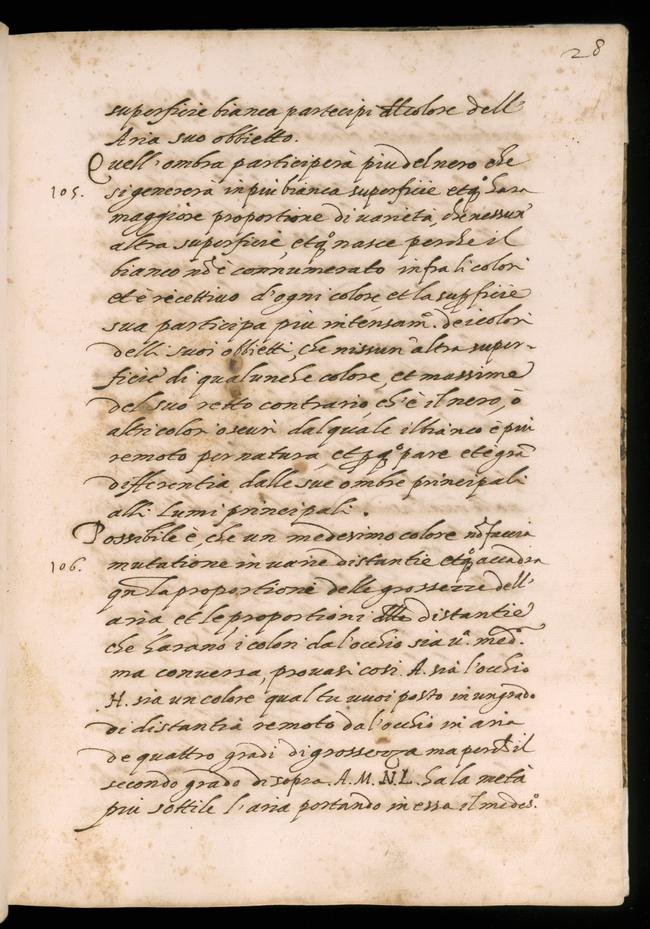 28
superficie bianca partecipi del colore dell'
Aria suo obbietto.
Quell'ombra participera piu del nero che
105. si genererà in piu bianca superficie et qto hara
maggiore proportione di varietà, che nessun'
altra superficie, et qto nasce perche il
bianco nō è connumerato infra li colori
et è recettivo d'ogni colore, et la supficie
sua participa piu intensam.e de i colori
delli suoi obbietti, che nissun'altra super-
ficie di qualunche colore, et massime
del suo retto contrario ch'è il nero, ò
altri colori oscuri dal quale il bianco è piu
remoto per natura, et p qto pare et è grā
differentia dalle sue ombre principali
alli lumi principali.
Possibile è, che un medesimo colore nō faccia
106. mutatione in varie distantie et qto accadra
qn la proportione delle grossezze dell'
aria, et le proportioni delle distantie
che harano i colori da l'occhio sia u.a med.a
ma conversa, provasi così. A. sia l'occhio
.H. sia un colore qual tu vuoi posto in un grado
di distantia remoto da l'occhio in aria
de quattro gradi di grossezza ma perche il
secondo grado di sopra .A.M.N.L. ha la metà
piu sottile l'aria portando in essa il medes.o